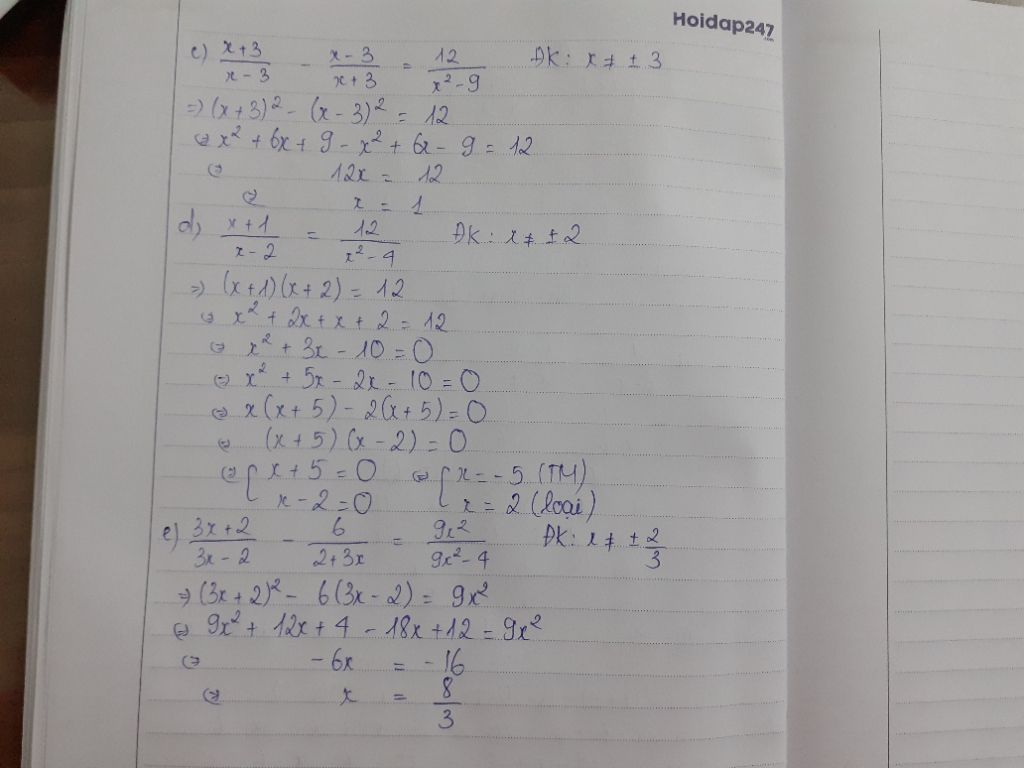 Hoidap247.com
c) \frac{x+3}{x-3} - \frac{x-3}{x+3} = \frac{12}{x²-9} ĐK: x ≠ ± 3
=> (x+3)² - (x-3)² = 12
<=> x² + 6x + 9 - x² + 6x - 9 = 12
<=> 12x = 12
<=> x = 1
d) \frac{x+1}{x-2} = \frac{12}{x²-4} ĐK: x ≠ ± 2
=> (x+1)(x+2) = 12
<=> x² + 2x + x + 2 = 12
<=> x² + 3x - 10 = 0
<=> x² + 5x - 2x - 10 = 0
<=> x(x+5) - 2(x+5) = 0
<=> (x+5)(x-2) = 0
<=> { x + 5 = 0 <=> { x = -5 (TM)
x - 2 = 0 x = 2 (loại)
e) \frac{3x+2}{3x-2} - \frac{6}{2+3x} = \frac{9x²}{9x²-4} ĐK: x ≠ ± \frac{2}{3}
=> (3x+2)² - 6(3x-2) = 9x²
<=> 9x² + 12x + 4 - 18x + 12 = 9x²
<=> -6x = -16
<=> x = \frac{8}{3}